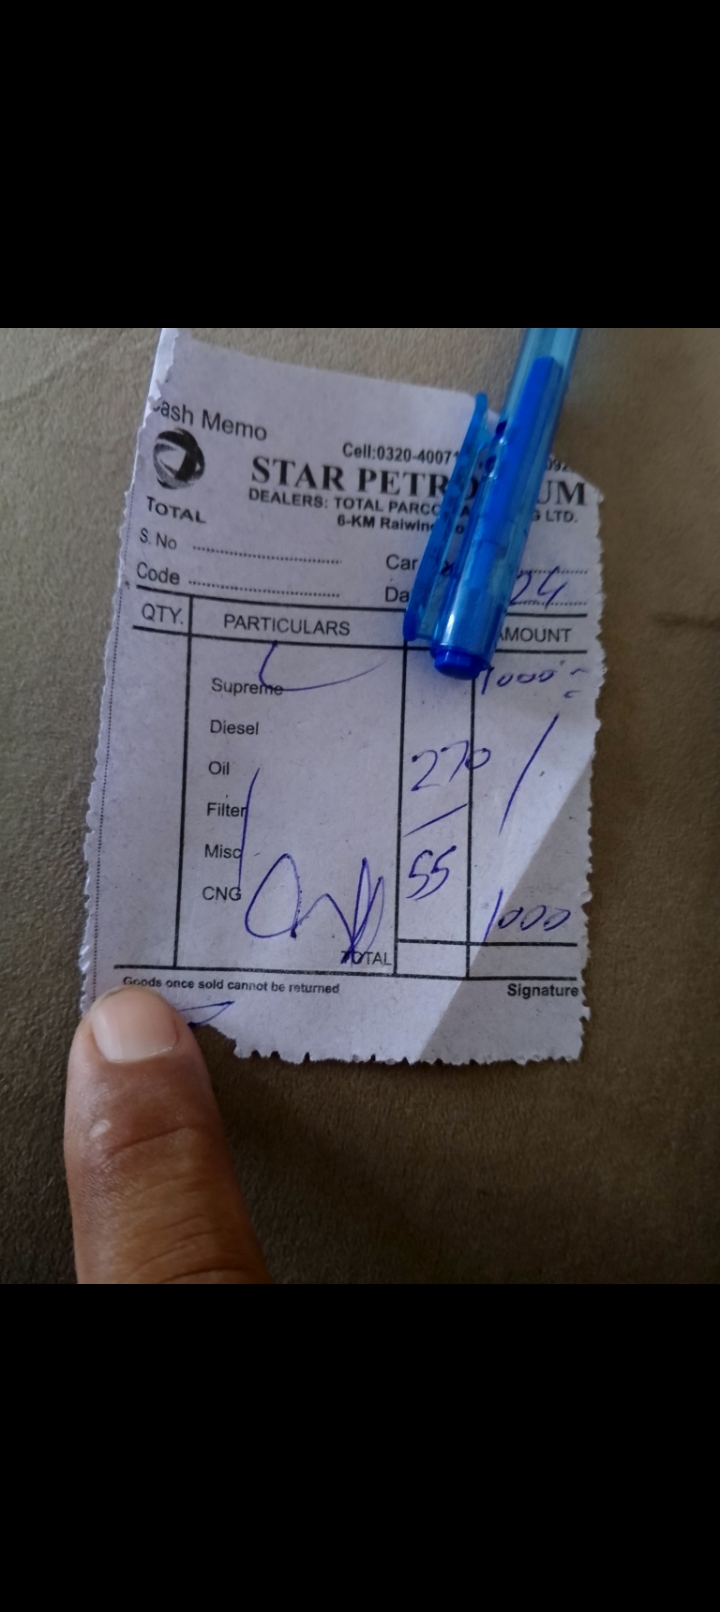 Cash Memo
Cell:0320-4007
STAR PETRO UM
DEALERS: TOTAL PARCO G LTD.
TOTAL
6-KM Raiwin
S. No
Car
Code
Da 24
QTY. PARTICULARS AMOUNT
Supreme 1000
Diesel
Oil 270
Filter
Misc 55
CNG 1000
TOTAL
Goods once sold cannot be returned Signature